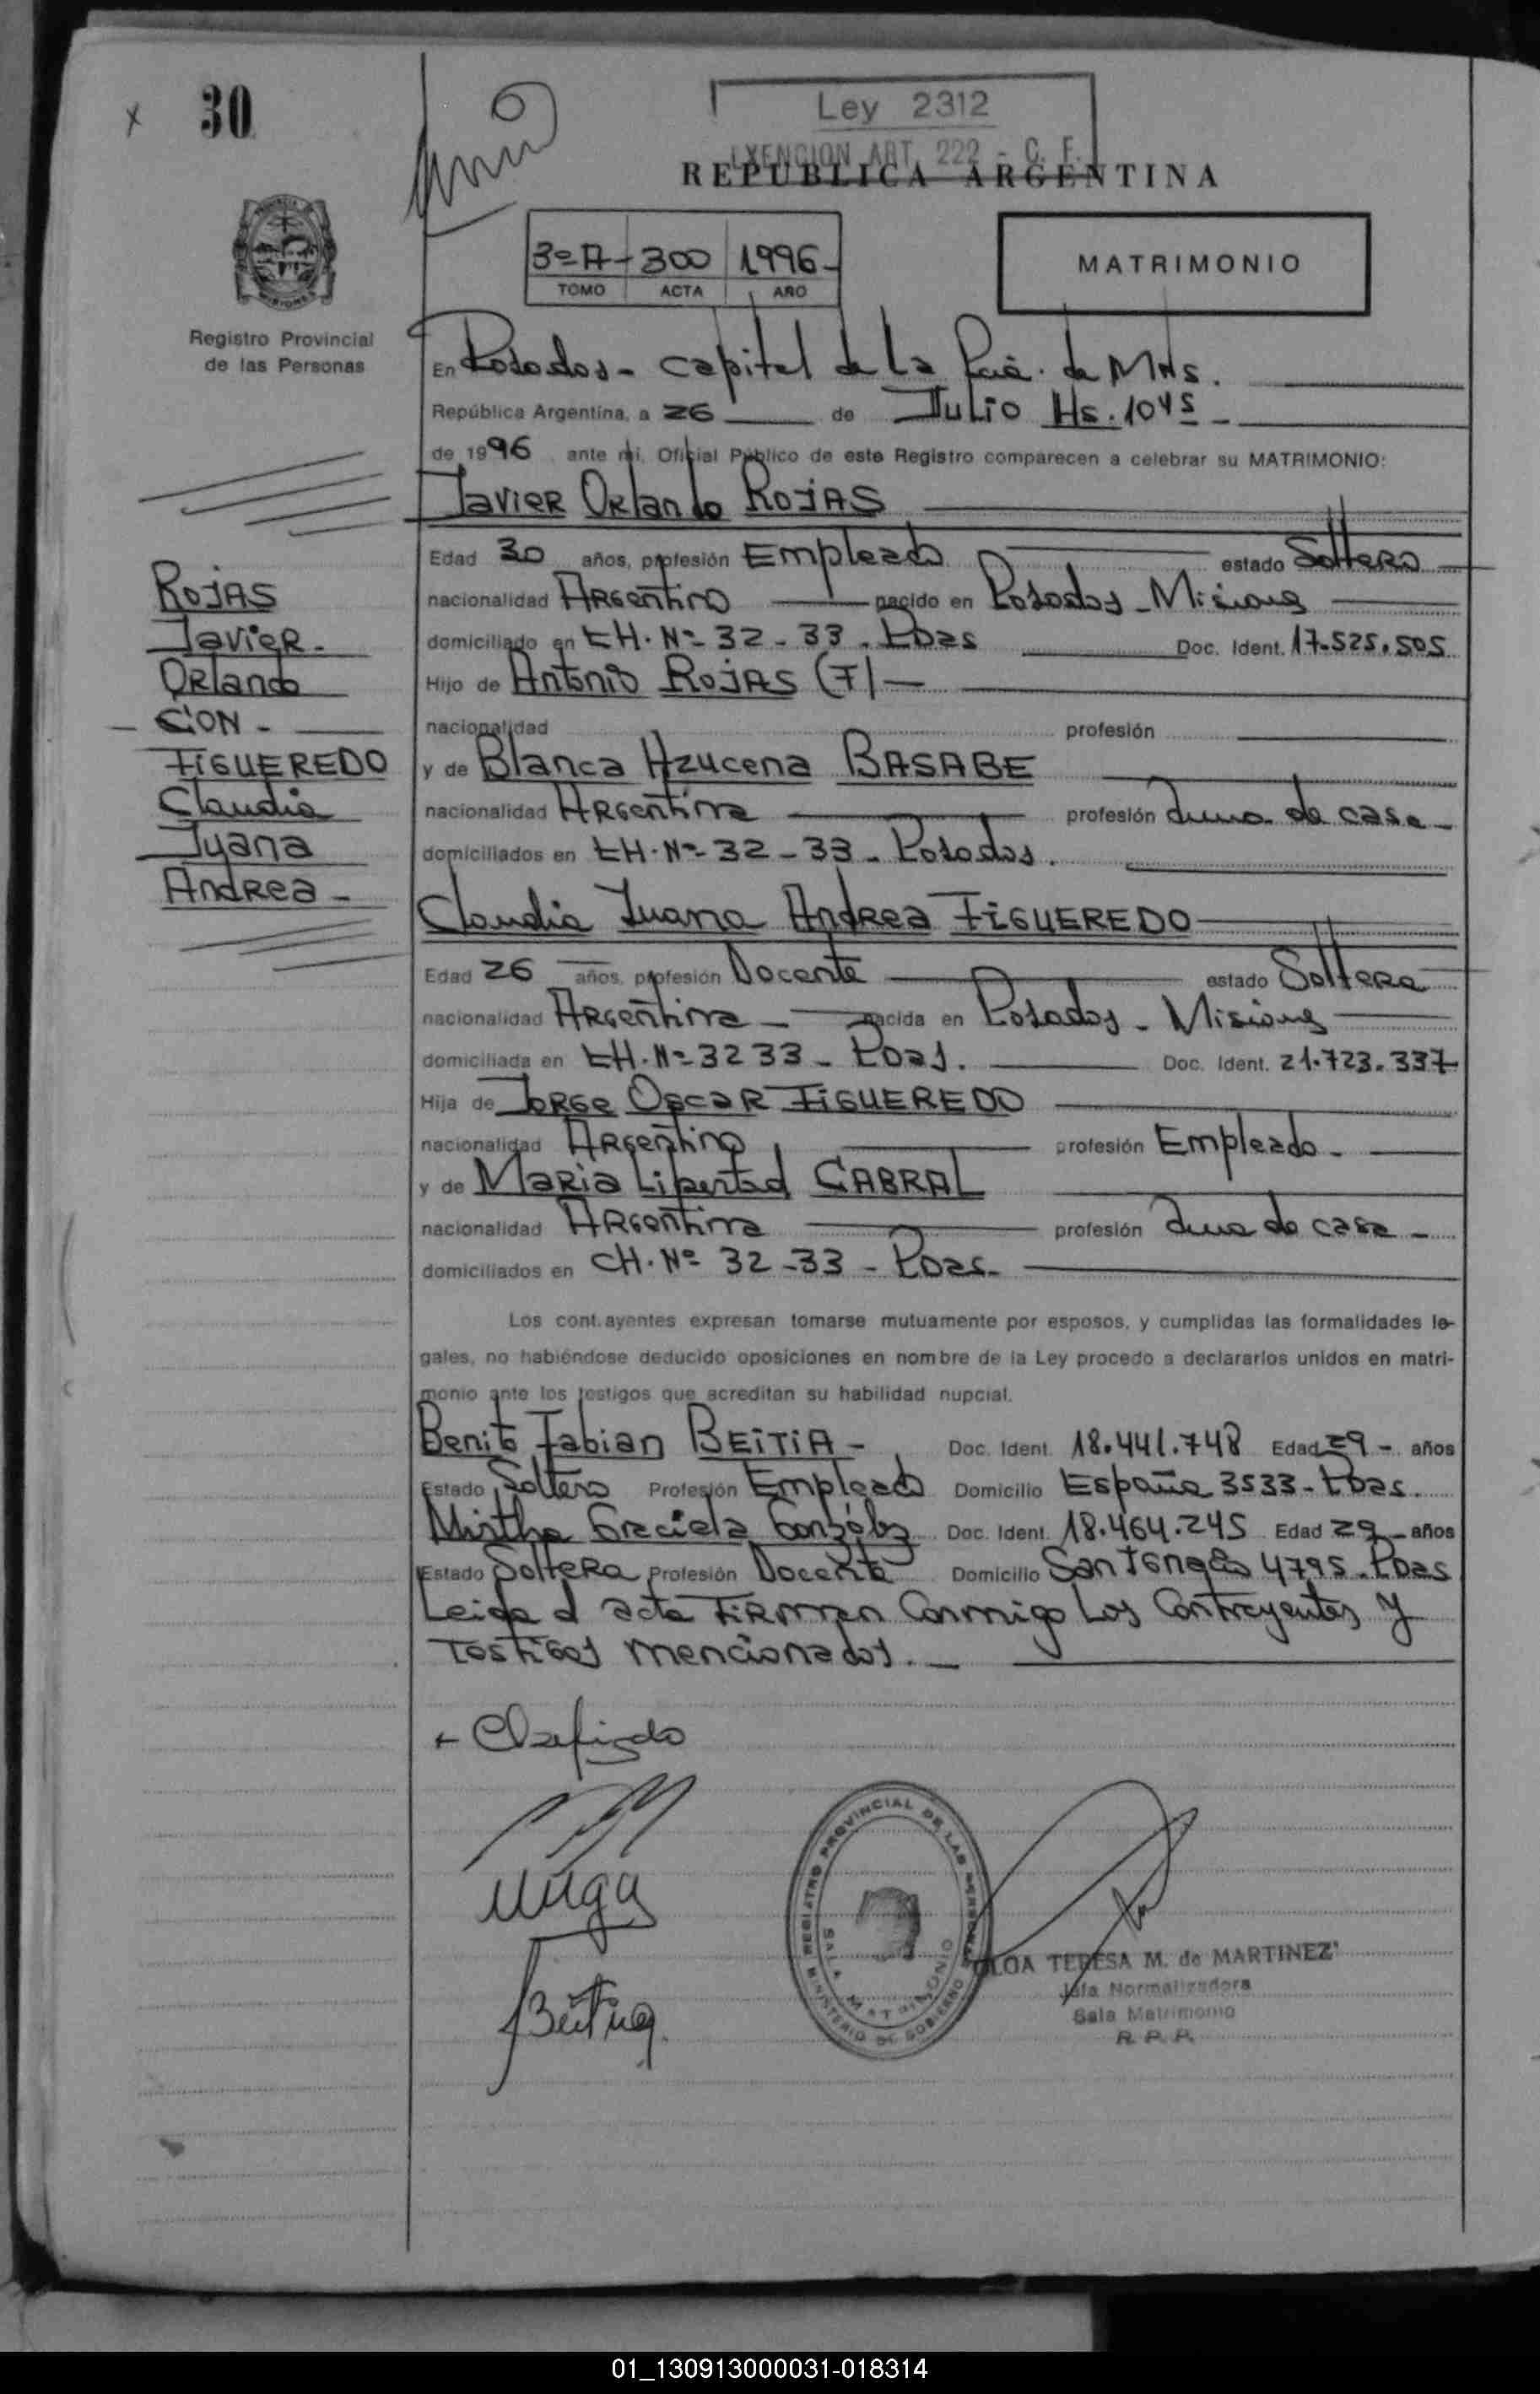 30
Ley 2312
EXENCION ART. 222 - C. F.
REPUBLICA ARGENTINA
3º A - 300 1996 -
TOMO ACTA AÑO
MATRIMONIO
Registro Provincial
de las Personas
En Posadas - Capital de la Pcia. de Mnes.
República Argentina, a 26 de Julio Hs. 1045 -
de 1996 ante mi, Oficial Público de este Registro comparecen a celebrar su MATRIMONIO:
Javier Orlando ROJAS
Edad 30 años, profesión Empleado estado Soltero
nacionalidad Argentino nacido en Posadas - Misiones
domiciliado en CH. Nº 32 - 33 - Pdas Doc. Ident. 17.525.505
Hijo de Antonio ROJAS (F) -
nacionalidad profesión
y de Blanca Azucena BASABE
nacionalidad Argentina profesión ama de casa -
domiciliados en CH. Nº 32 - 33 - Posadas.
ROJAS
Javier -
Orlando
CON -
FIGUEREDO
Claudia
Juana
Andrea -
Claudia Juana Andrea FIGUEREDO
Edad 26 años, profesión Docente estado Soltera
nacionalidad Argentina - nacida en Posadas - Misiones
domiciliada en CH. Nº 32 33 - Pdas. Doc. Ident. 21.723.337
Hija de Jorge Oscar FIGUEREDO
nacionalidad Argentino profesión Empleado -
y de Maria Libertad CABRAL
nacionalidad Argentina profesión ama de casa -
domiciliados en CH. Nº 32 - 33 - Pdas -
Los cont.ayentes expresan tomarse mutuamente por esposos, y cumplidas las formalidades le-
gales, no habiéndose deducido oposiciones en nombre de la Ley procedo a declararlos unidos en matri-
monio ante los testigos que acreditan su habilidad nupcial.
Benito Fabian BEITIA - Doc. Ident. 18.441.748 Edad 29 - años
Estado Soltero Profesión Empleado Domicilio España 3533 - Pdas.
Mirtha Graciela González Doc. Ident. 18.464.245 Edad 29 - años
Estado Soltera Profesión Docente Domicilio San Ignacio 4795 - Pdas
Leida el acta FIRMAN Conmigo Los Contrayentes y
Testigos mencionados. -
REGISTRO PROVINCIAL DE LAS PERSONAS
SALA MATRIMONIO
MINISTERIO DE GOBIERNO
TERESA M. de MARTINEZ
Jefa Normalizadora
Sala Matrimonio
R. P. P.
01_130913000031-018314